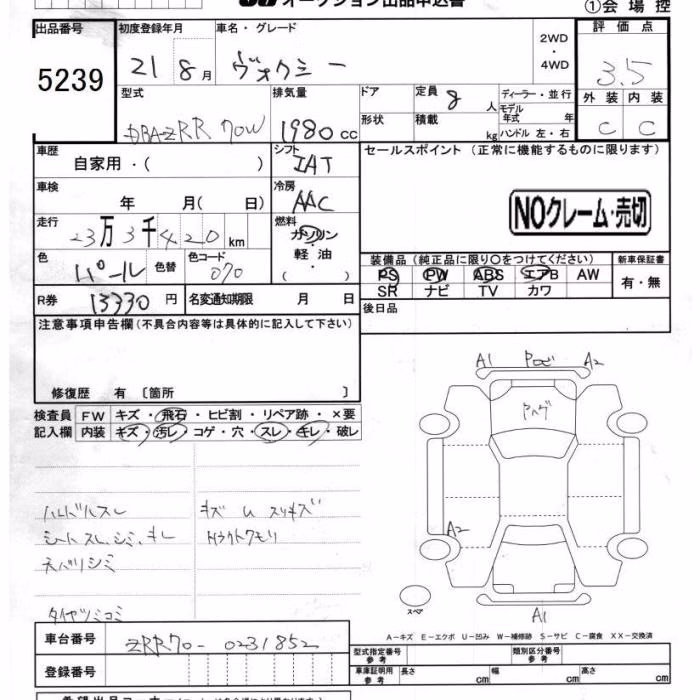 オークション出品申込書
①会場控
出品番号
5239
初度登録年月
21 8月
車名・グレード
ヴォクシー
2WD
・
4WD
評価点
3.5
外装 内装
C C
型式
DBA-ZRR70W
排気量
1980 cc
ドア
形状
定員 8人
積載 kg
ディーラー・並行
モデル年式 年
ハンドル 左・右
車歴
自家用・( )
シフト
IAT
セールスポイント (正常に機能するものに限ります)
車検
年 月( 日)
冷房
AAC
NOクレーム・売切
走行
23万3千420km
燃料
ガソリン
・
軽油
・
( )
色
パール
色替
色コード
070
装備品(純正品に限り○をつけてください)
PS PW ABS エアB AW
SR ナビ TV カワ
新車保証書
有・無
R券 13330円
名変通知期限 月 日
後日品
注意事項申告欄(不具合内容等は具体的に記入して下さい)
修復歴 有 〔箇所 〕
検査員
記入欄
FW キズ・飛石・ヒビ割・リペア跡・×要
内装 キズ・汚レ・コゲ・穴・スレ・キレ・破レ
ハンドルスレ
シートスレ、シミ、キレ
天バリシミ
タイヤツミコミ
A1 A2
A2
A1
スペア
A−キズ E−エクボ U−凹み W−補修跡 S−サビ C−腐食 XX−交換済
車台番号
ZRR70-0231852
登録番号
型式指定番号
参考
類別区分番号
参考
車庫証明用
参考
長さ cm
幅 cm
高さ cm